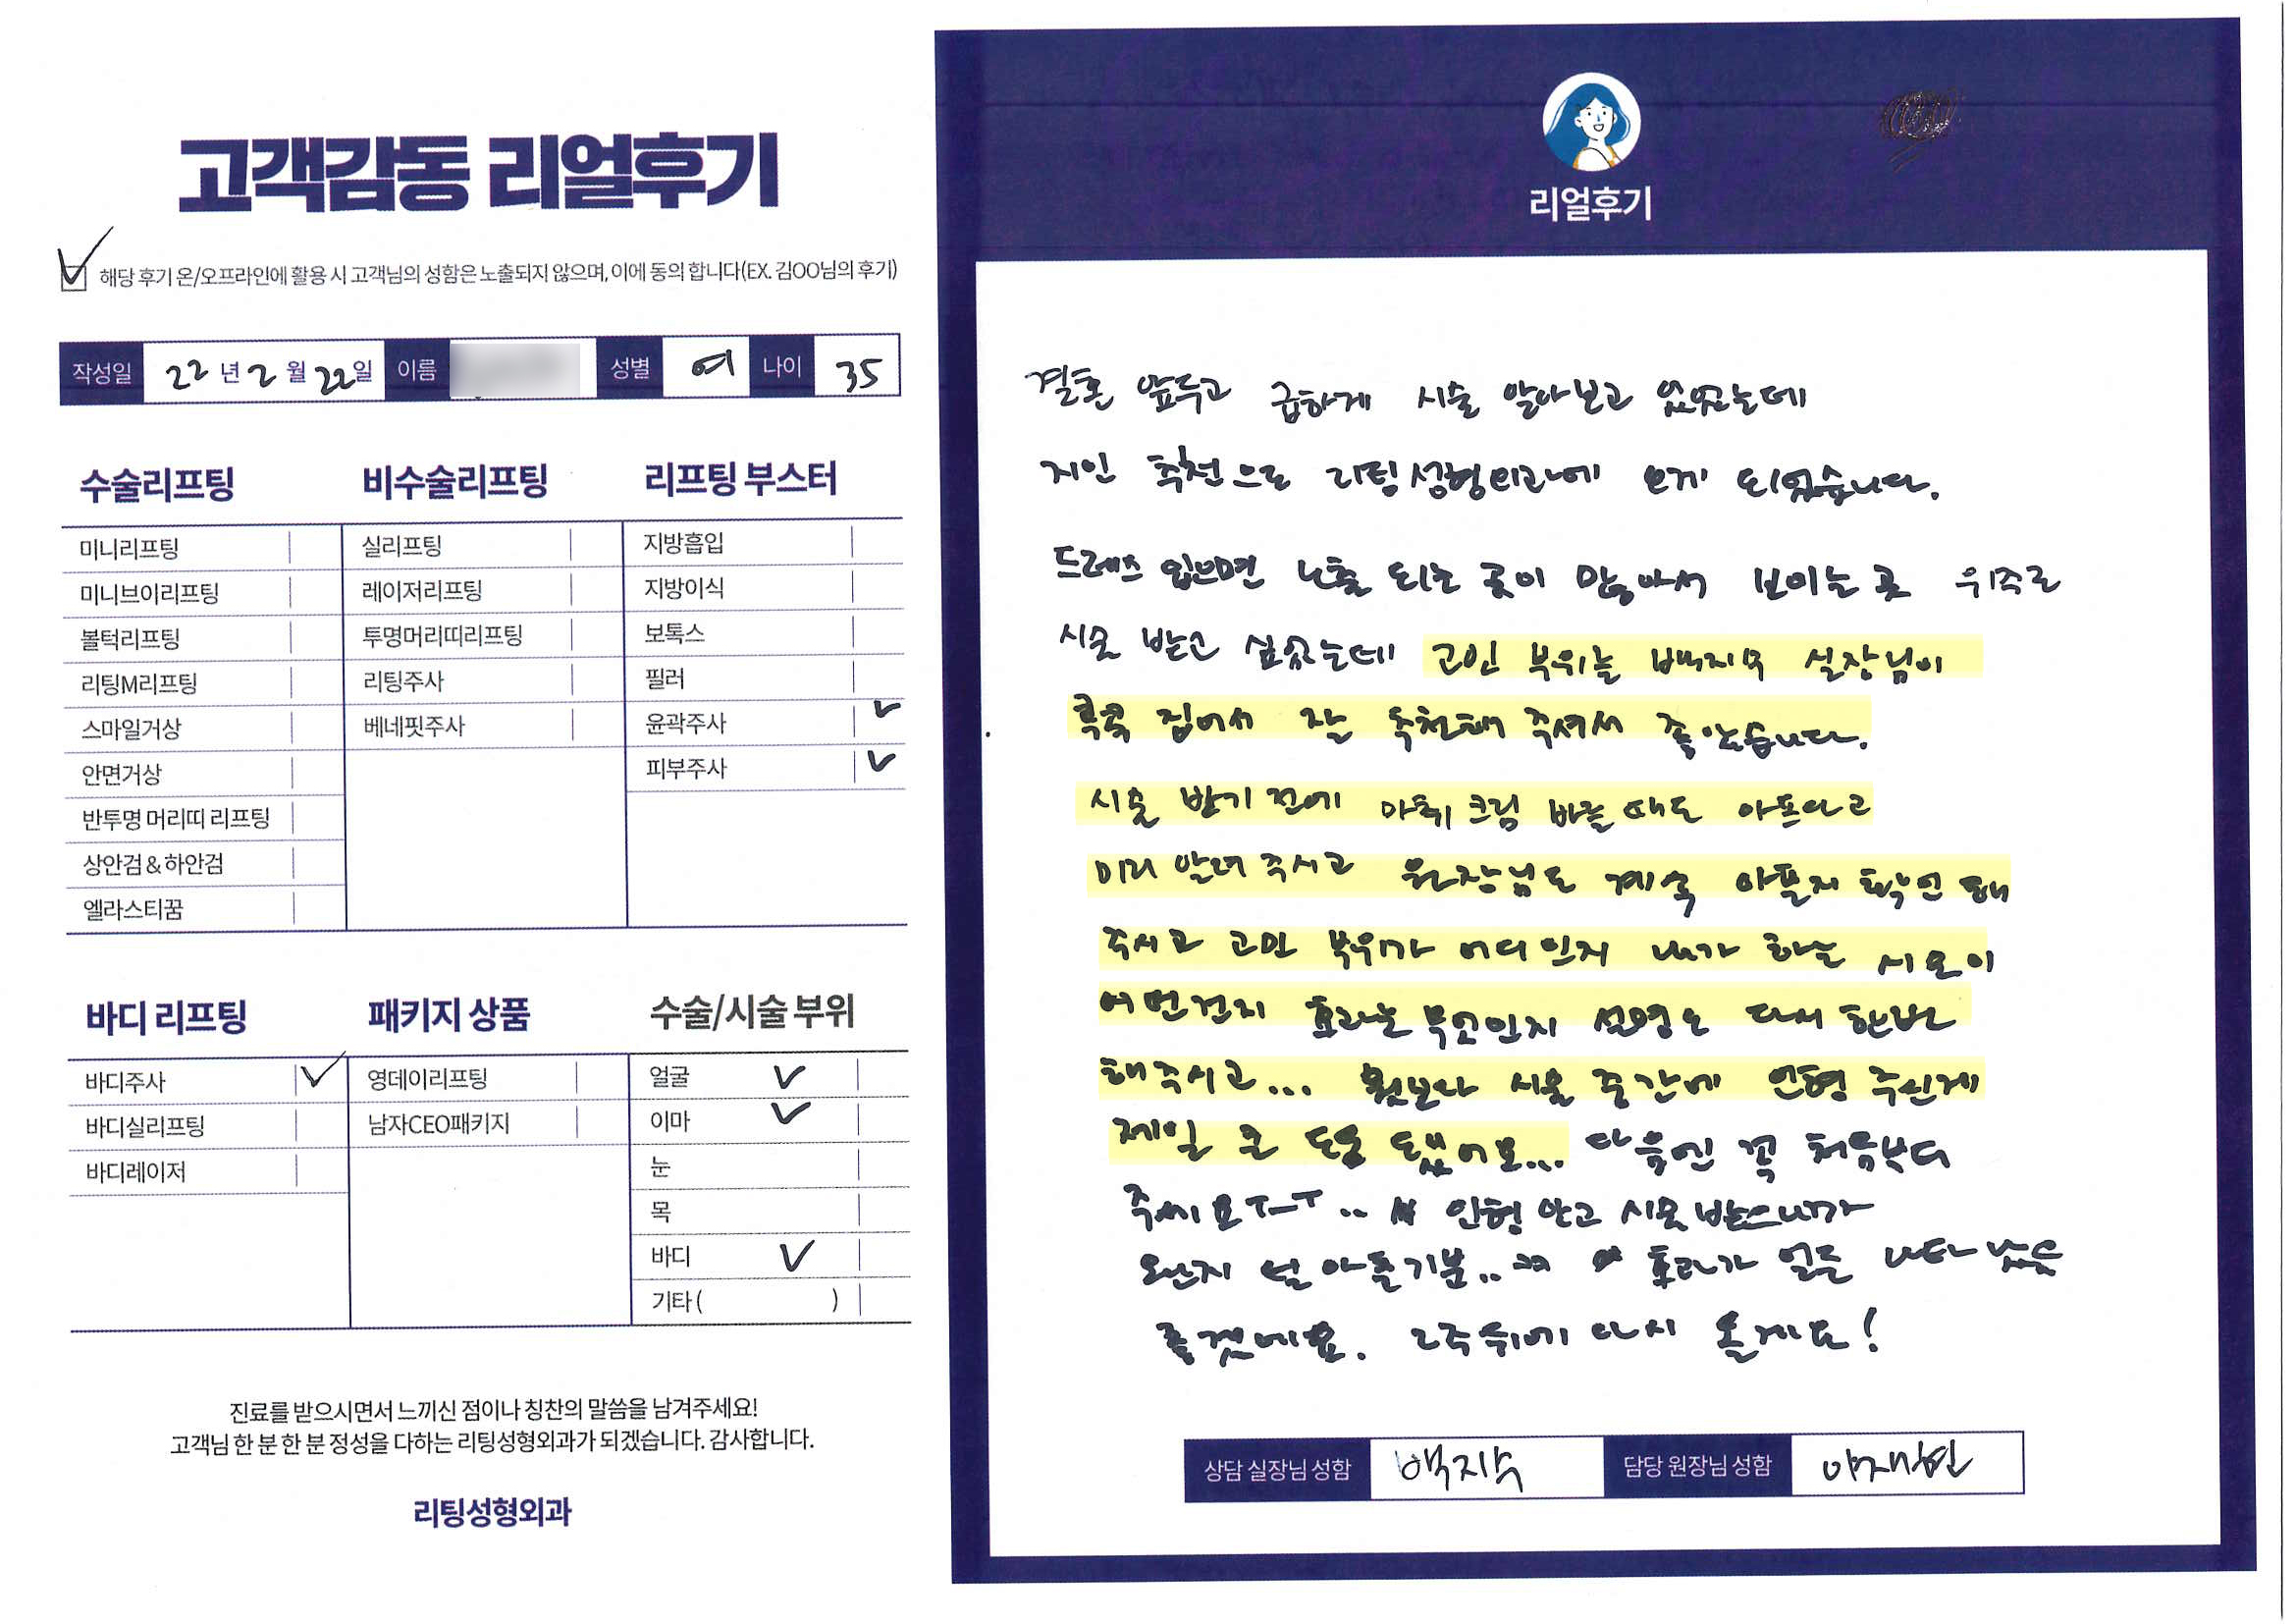 고객감동 리얼후기
해당 후기 온/오프라인에 활용 시 고객님의 성함은 노출되지 않으며, 이에 동의 합니다(EX. 김OO님의 후기)
작성일 22년 2월 22일 이름 성별 여 나이 35
수술리프팅
미니리프팅
미니브이리프팅
볼턱리프팅
리팅M리프팅
스마일거상
안면거상
반투명 머리띠 리프팅
상안검&하안검
엘라스티꿈
비수술리프팅
실리프팅
레이저리프팅
투명머리띠리프팅
리팅주사
베네핏주사
리프팅 부스터
지방흡입
지방이식
보톡스
필러
윤곽주사
피부주사
바디 리프팅
바디주사
바디실리프팅
바디레이저
패키지 상품
영데이리프팅
남자CEO패키지
수술/시술 부위
얼굴
이마
눈
목
바디
기타( )
진료를 받으시면서 느끼신 점이나 칭찬의 말씀을 남겨주세요!
고객님 한 분 한 분 정성을 다하는 리팅성형외과가 되겠습니다. 감사합니다.
리팅성형외과
리얼후기
결혼 앞두고 급하게 시술 알아보고 있었는데
지인 추천으로 리팅성형외과에 오게 되었습니다.
드레스 입으면 노출 되는 곳이 많아서 보이는 곳 위주로
시술 받고 싶었는데 고민 부위를 백지수 실장님이
콕콕 집어서 잘 추천해 주셔서 좋았습니다.
시술 받기 전에 마취크림 바를때도 아프다고
미리 알려주시고 원장님도 계속 아픈지 확인 해
주시고 고민 부위가 어디인지 내가 하는 시술이
어떤건지 효과는 무엇인지 설명도 다시 한번
해주시고... 무엇보다 시술 중간에 인형 주신게
제일 큰 도움 됐어요... 다음엔 꼭 처음부터
주세요 ㅜㅜ.. 인형 안고 시술 받으니까
왠지 덜 아픈기분.. ㅋㅋ 효과가 얼른 나타났음
좋겠네요. 2주뒤에 다시 올게요!
상담 실장님 성함 백지수 담당 원장님 성함